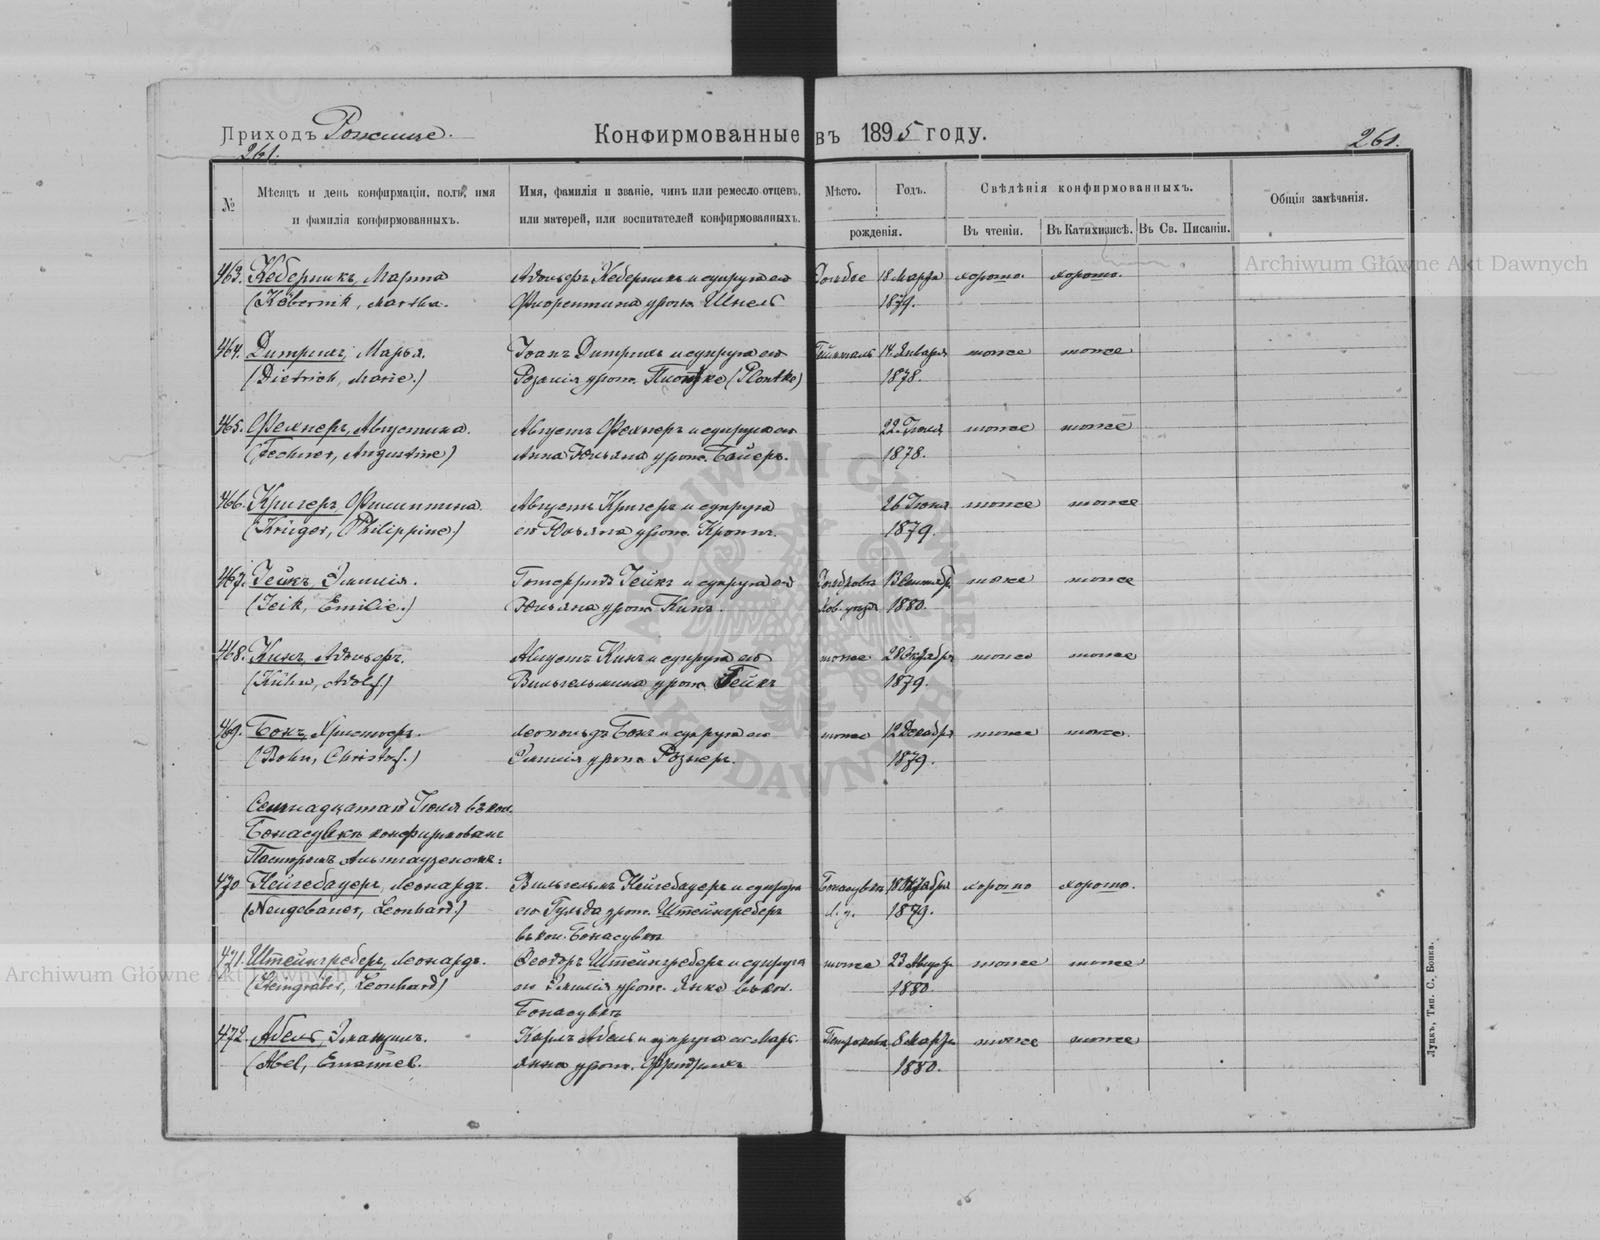 Приходъ Рожище.
Конфирмованные въ 1895 году.
261.
261.
№
Мѣсяцъ и день конфирмаціи, полъ, имя
и фамилія конфирмованныхъ.
Имя, фамилія и званіе, чинъ или ремесло отцевъ,
или матерей, или воспитателей конфирмованныхъ.
Мѣсто.
Годъ.
рожденія.
Свѣдѣнія конфирмованныхъ.
Въ чтеніи.
Въ Катихизисѣ.
Въ Св. Писаніи.
Общія замѣчанія.
463. Кеберникъ, Марта Адольфъ Кеберникъ и супруга его 18 Марта хорошо. хорошо.
(Köbernik, Martha. Флорентина урож. Шнель 1879.
464. Дитрихъ, Марья. Іоанъ Дитрихъ и супруга его 14 Января тоже тоже
(Dietrich, Marie.) Розалія урож. Плонтке (Plontke) 1878.
465. Фехнеръ, Августина. Августъ Фехнеръ и супруга его 22 Іюля тоже тоже
(Fechner, Augustine) Анна Юльяна урож. Байеръ. 1878.
466. Кригеръ, Филиппина. Августъ Кригеръ и супруга 26 Іюня тоже тоже
(Krüger, Philippine.) его Юльяна урож. Кроппъ. 1879.
467. Гейкъ, Эмилія. Готфридъ Гейкъ и супруга его тоже тоже
(Jeik, Emilie.) Юльяна урож. Кинъ. 1880.
468. Кинъ, Адольфъ. Августъ Кинъ и супруга его тоже 28 Октября тоже тоже
(Kühn, Adolf.) Вильгельмина урож. Гейкъ 1879.
469. Бонъ, Христофъ. Леопольдъ Бонъ и супруга его тоже 12 Декабря тоже тоже.
(Bohn, Christof.) Эмилія урож. Рознеръ. 1879.
Семнадцатаго Іюля въ кол.
Бонасувкѣ конфирмованы
Пасторомъ Альтгаузеномъ:
470 Нейгебауеръ, Леонардъ. Вильгельмъ Нейгебауеръ и супруга Бонасувкѣ 18 Октября хорошо хорошо.
(Neugebauer, Leonhard.) его Гульда урож. Штейнгреберъ 1879.
въ кол. Бонасувкѣ
471. Штейнгреберъ, Леонардъ. Теодоръ Штейнгреберъ и супруга тоже 23 Августа тоже тоже
(Steingräber, Leonhard) его Эмилія урож. Янке въ кол. 1880
Бонасувкѣ
472. Абель, Эмануилъ. Карлъ Абель и супруга его Марь- 8 Марта тоже тоже
(Abel, Emanuel. янна урож. Фридрихъ 1880.
Луцкъ, Тип. С. Бонка.
Archiwum Główne Akt Dawnych
Archiwum Główne Akt Dawnych
ARCHIWUM GŁÓWNE AKT DAWNYCH